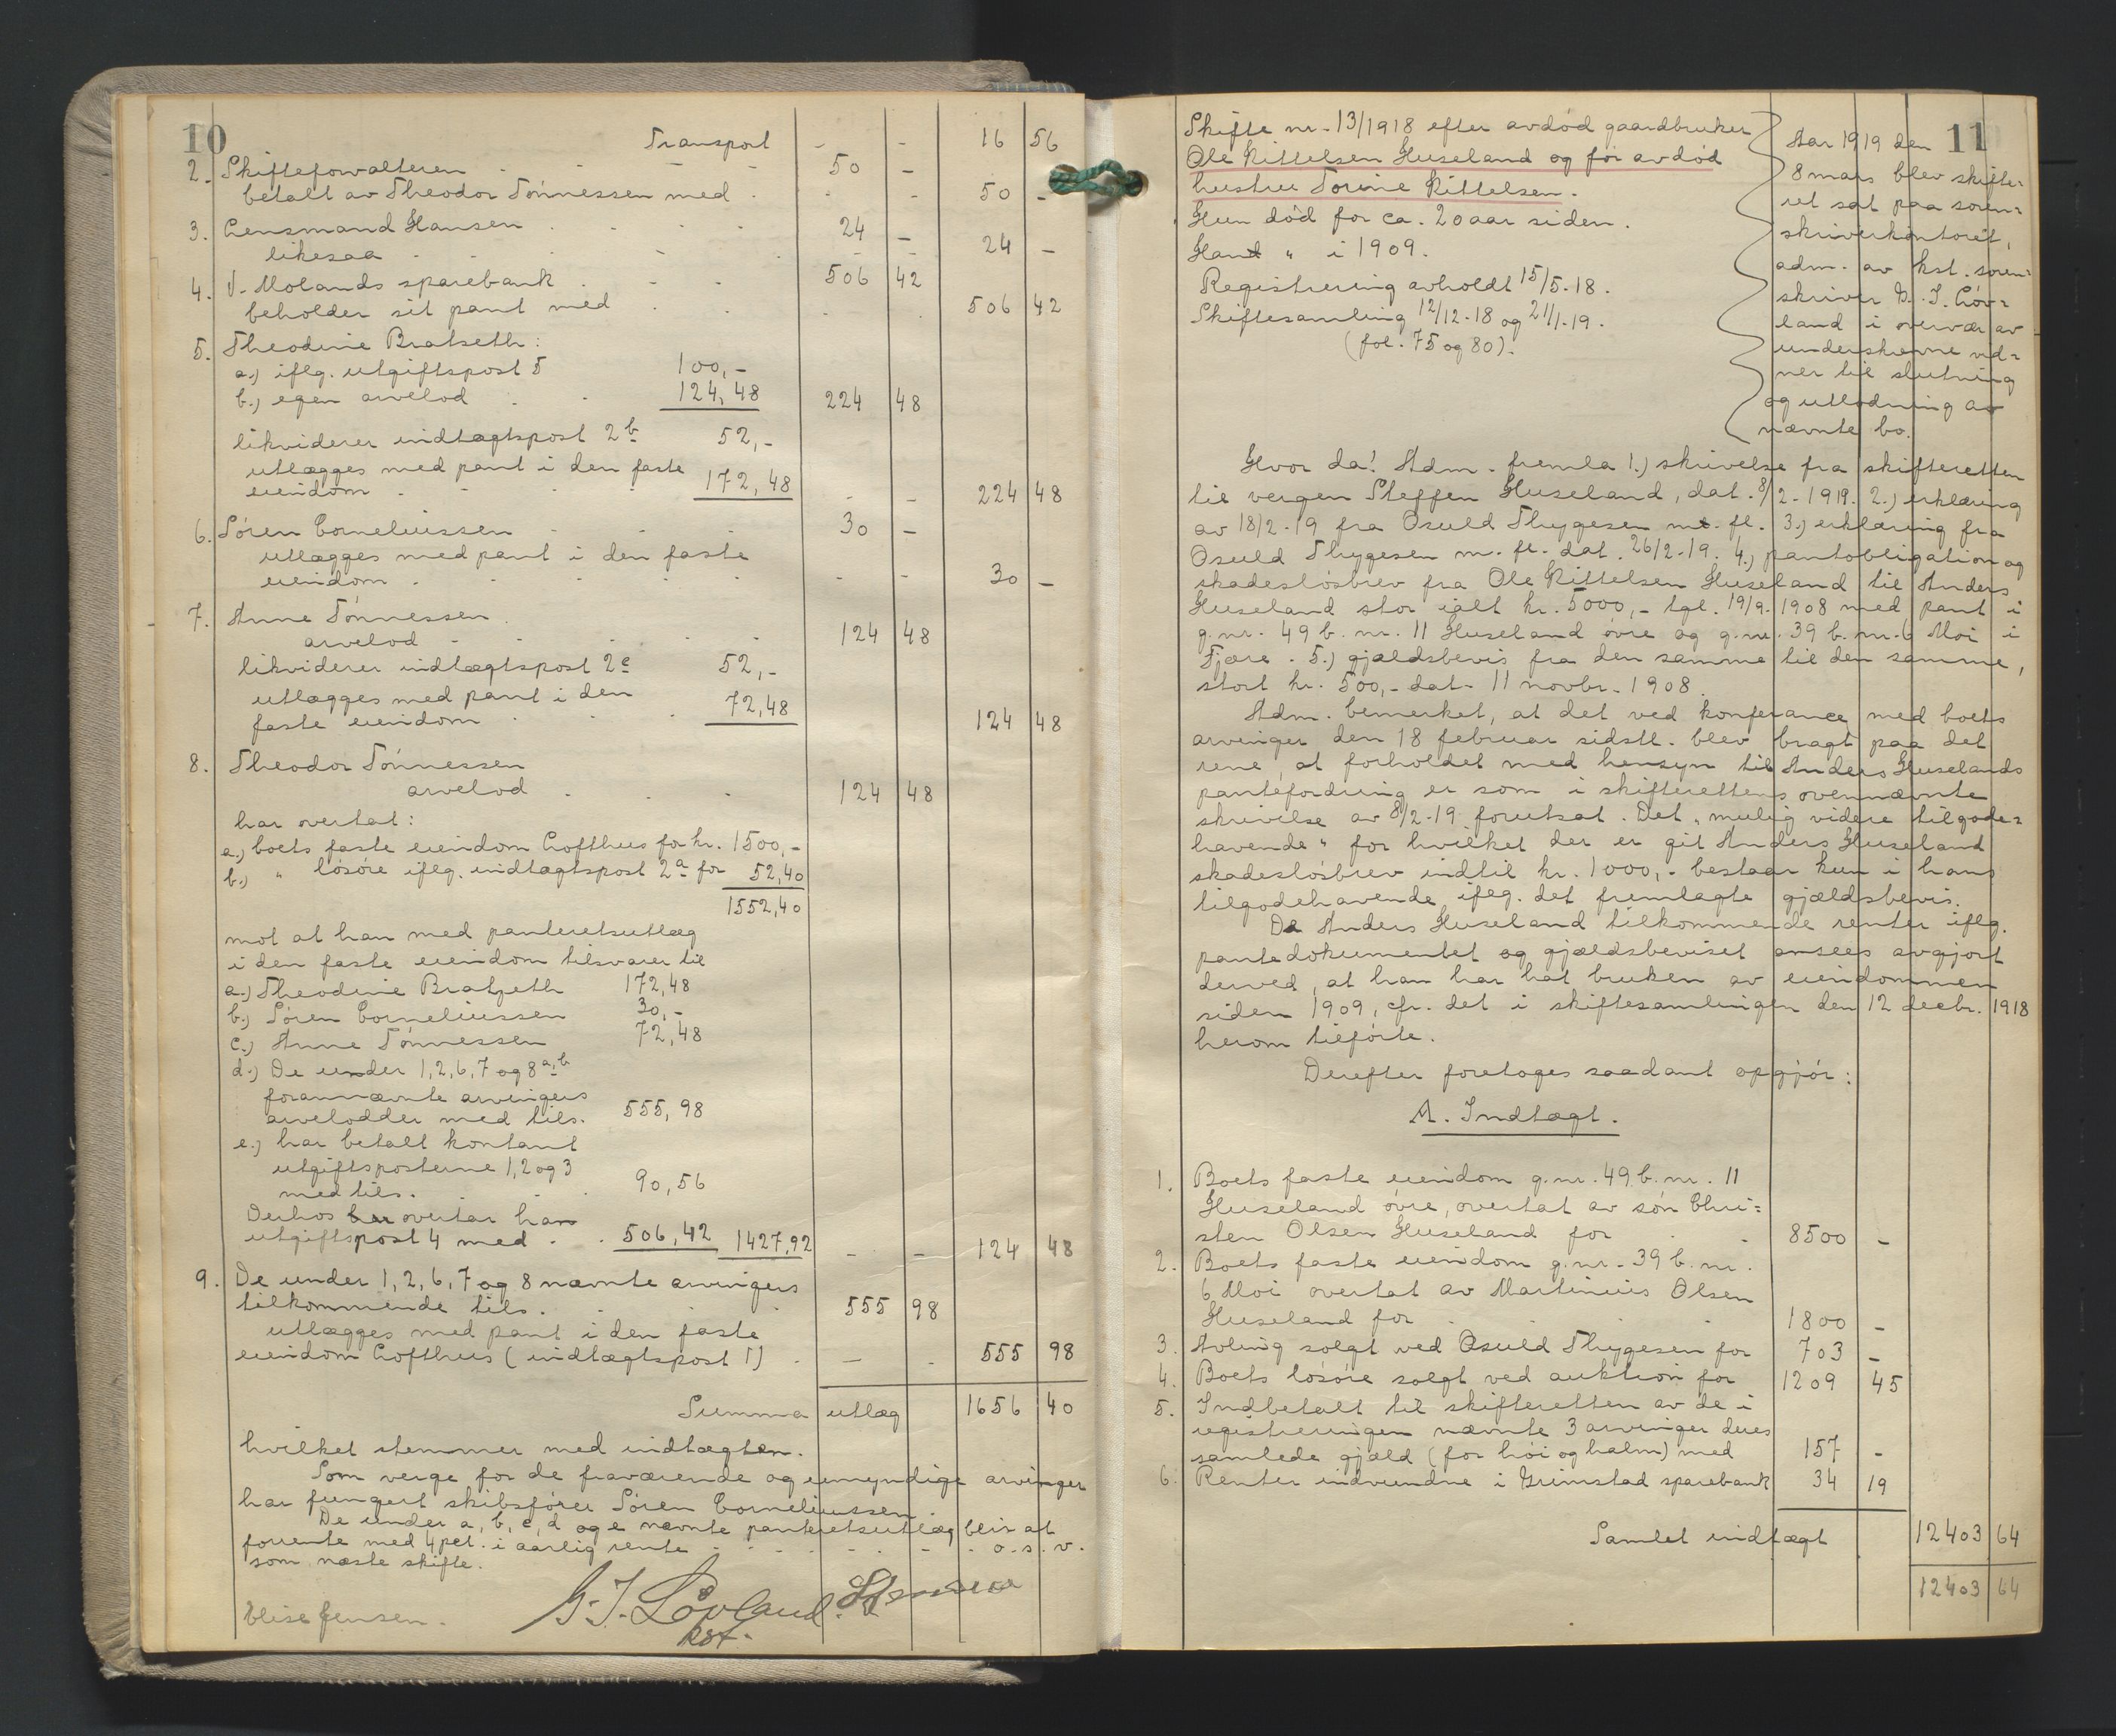 10
Transport - - 16 56
2. Skifteforvalteren 50 -
betalt av Theodor Tönnessen med - - 50 -
3. Lensmand Hansen 24 -
likesaa - - 24 -
4. V. Molands sparebank 506 42
beholder sit pant med 506 42
5. Theodine Bratseth:
a.) iflg. utgiftspost 5 100,-
b.) egen arvelod 124,48 224 48
likviderer indtægtspost 2b 52,-
utlægges med pant i den faste
eiendom 172,48 - - 224 48
6. Sören Corneliussen 30 -
utlægges med pant i den faste
eiendom - - 30 -
7. Anne Tönnessen
arvelod 124 48
likviderer indtægtspost 2c 52,-
utlægges med pant i den
faste eiendom 72,48 124 48
8. Theodor Tönnessen
arvelod 124 48
har overtat:
a.) boets faste eiendom Lofthus for kr. 1500,-
b.) " lösöre iflg. indtægtspost 2a for 52,40
1552,40
mot at han med panteretsutlæg
i den faste eiendom tilsvarer til
a.) Theodine Bratseth 172,48
b.) Sören Corneliussen 30,-
c.) Anne Tönnessen 72,48
d.) De under 1,2,6,7 og 8a,b
forannævnte arvingers
arvelodder med tils. 555,98
e.) har betalt kontant
utgiftsposterne 1,2 og 3
med tils. 90,56
Derhos overtar han
utgiftspost 4 med 506,42 1427,92 - - 124 48
9. De under 1,2,6,7 og 8 nævnte arvingers
tilkommende tils. 555 98
utlægges med pant i den faste
eiendom Lofthus (indtægtspost 1) - - 555 98
Summa utlæg 1656 40
hvilket stemmer med indtægten.
Som verge for de fraværende og umyndige arvinger
har fungert skibsförer Sören Corneliussen.
De under a, b, c, d og e nævnte panteretsutlæg blir at
forrente med 4 pct. i aarlig rente - - - o.s.v.
som næste skifte.
Elise Jensen. G.J. Lövland.
kst.
11
Skifte nr. 13/1918 efter avdöd gaardbruker
Ole Kittelsen Huseland og för avdöd
hustru Torine Kittelsen.
Hun död for ca. 20 aar siden.
Han " i 1909.
Registrering avholdt 15/5-18.
Skiftesamling 12/12-18 og 21/1-19.
(fol. 75 og 80).
Aar 1919 den
8 mars blev skifte-
ret sat paa soren-
skriverkontoret,
adm. av kst. soren-
skriver G. J. Löv-
land i overvær av
underskrevne vid-
ner til slutning
og utlodning av
nævnte bo.
Hvor da! Adm. fremla 1.) skrivelse fra skifteretten
til vergen Steffen Huseland, dat. 8/2-1919. 2.) erklæring
av 18/2-19 fra Osuld Thygesen m. fl. 3.) erklæring fra
Osuld Thygesen m. fl. dat. 26/2-19. 4.) pantobligation og
skadeslösbrev fra Ole Kittelsen Huseland til Anders
Huseland stor ialt kr. 5000,- tgl. 19/9-1908 med pant i
g.nr. 49 b.nr. 11 Huseland övre og g.nr. 39 b.nr. 6 Moi i
Fjære. 5.) gjældsbevis fra den samme til den samme,
stort kr. 500,- dat. 11 novbr. 1908.
Adm. bemerket, at det ved konferance med boets
arvinger den 18 februar sidstl. blev bragt paa det
rene, at forholdet med hensyn til Anders Huselands
pantefordring er som i skifterettens ovennævnte
skrivelse av 8/2-19 forutsat. Det "mulig videre tilgode-
havende" for hvilket der er git Anders Huseland
skadeslösbrev indtil kr. 1000,- bestaar kun i hans
tilgodehavende iflg. det fremlagte gjældsbevis.
De Anders Huseland tilkommende renter iflg.
pantedokumentet og gjældsbeviset ansees avgjort
derved, at han har hat bruken av eiendommen
siden 1909, cfr. det i skiftesamlingen den 12 decbr. 1918
herom tilförte.
Derefter foretoges saadant opgjör:
A. Indtægt.
1. Boets faste eiendom g.nr. 49 b.nr. 11
Huseland övre, overtat av sön Chri-
sten Olsen Huseland for 8500 -
2. Boets faste eiendom g.nr. 39 b.nr.
6 Moi overtat av Martinius Olsen
Huseland for 1800 -
3. Avling solgt ved Osuld Thygesen for 703 -
4. Boets lösöre solgt ved auktion for 1209 45
5. Indbetalt til skifteretten av de i
registreringen nævnte 3 arvinger deres
samlede gjæld (for höi og halm) med 157 -
6. Renter indvundne i Grimstad sparebank 34 19
Samlet indtægt 12403 64
12403 64